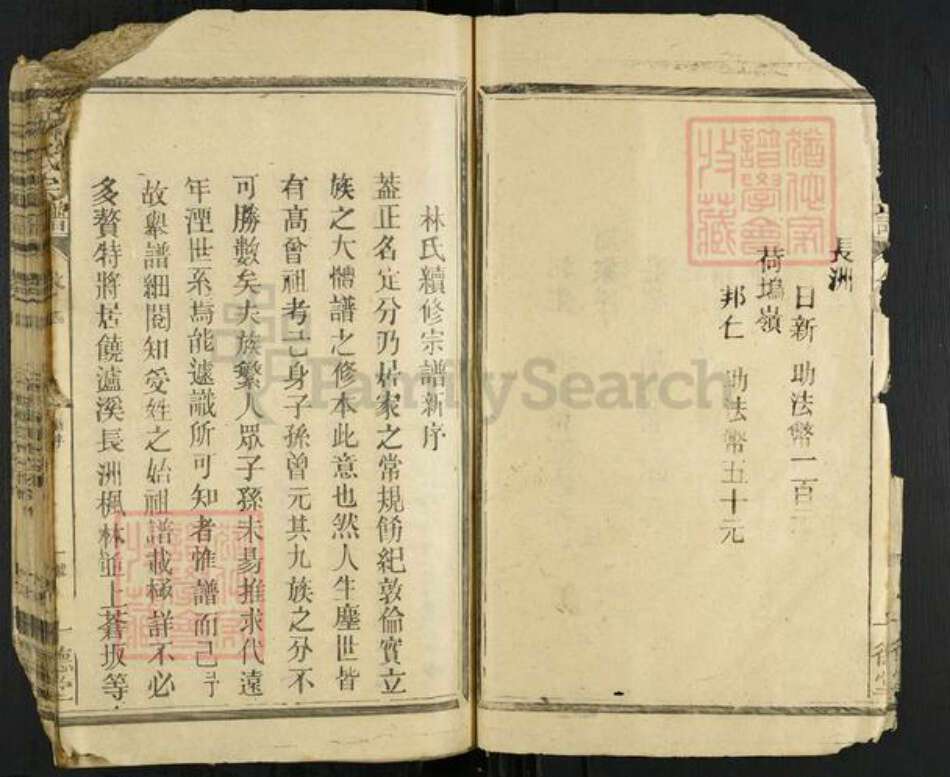 長洲
日新 助法幣一百
荷塢嶺
邦仁 助法幣五十元
林氏續修宗譜新序
蓋正名定分乃居家之常規飭紀敦倫實立
族之大體譜之修本此意也然人生塵世皆
有高曾祖考己身子孫曾元其九族之分不
可勝數矣夫族繁人眾子孫未易推求代遠
年湮世系焉能遽識所可知者惟譜而已
故舉譜細閱知受姓之始祖譜載極詳不必
多贅特將居饒瀘溪長洲楓林並上蒼坂等
FamilySearch